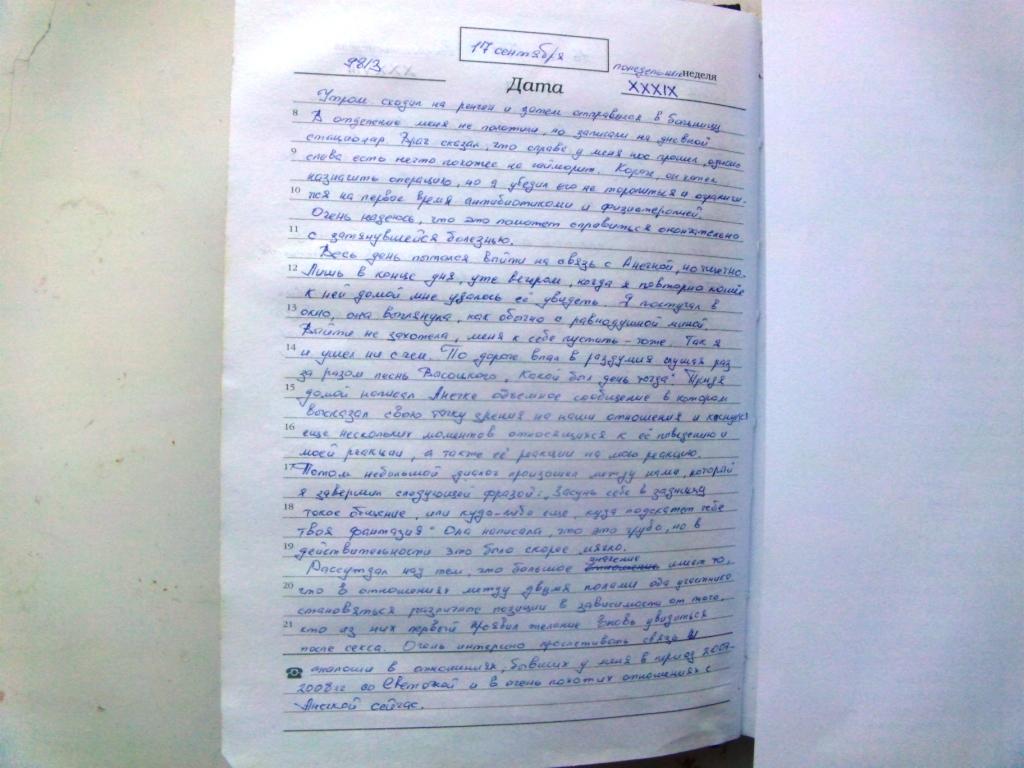 17 сентября
понедельник неделя
Дата
XXXIX
Утром сходил на ренген и затем отправился в больницу
8 В отделение меня не положили, но записали на дневной
стационар. Врач сказал, что справа у меня нос прошел, однако
9 слева есть нечто похожее на гайморит. Короче, он хотел
назначить операцию, но я убедил его не торопиться и ограничи-
10 тся на первое время антибиотиками и физиотерапией.
Очень надеюсь, что это поможет справиться окончательно
11 с затянувшейся болезнью.
Весь день пытался выйти на связь с Анечкой, но тщетно.
12 Лишь в конце дня, уже вечером, когда я повторно пошел
к ней домой мне удалось её увидеть. Я постучал в
13 окно, она выглянула, как обычно с равнодушной миной.
Выйти не захотела, меня к себе пустить - тоже. Так я
14 и ушел ни с чем. По дороге впал в раздумия слушая раз
за разом песнь Высоцкого "Какой был день тогда". Придя
15 домой написал Анечке объемное сообщение в котором
высказал свою точку зрения на наши отношения и коснулся
16 еще нескольких моментов относящихся к её поведению и
моей реакции, а также её реакции на мою реакцию.
17 Потом небольшой диалог произошел между нами, который
я завершил следующей фразой: "Засунь себе в задницу
18 такое общение, или куда-либо еще, куда подскажет тебе
твоя фантазия" Она написала, что это грубо, но в
19 действительности это было скорее мягко.
Рассуждал над тем, что большое значение имеет то,
20 что в отношениях между двумя полами оба участника
становяться различные позиции в зависимости от того,
21 кто из них первый проявил желание вновь увидеться
после секса. Очень интересно проследивать связь и
аналогии в отношениях, бывших у меня в период 2007-
2008 гг со Светочкой и в очень похожих отношениях с
Анечкой сейчас.